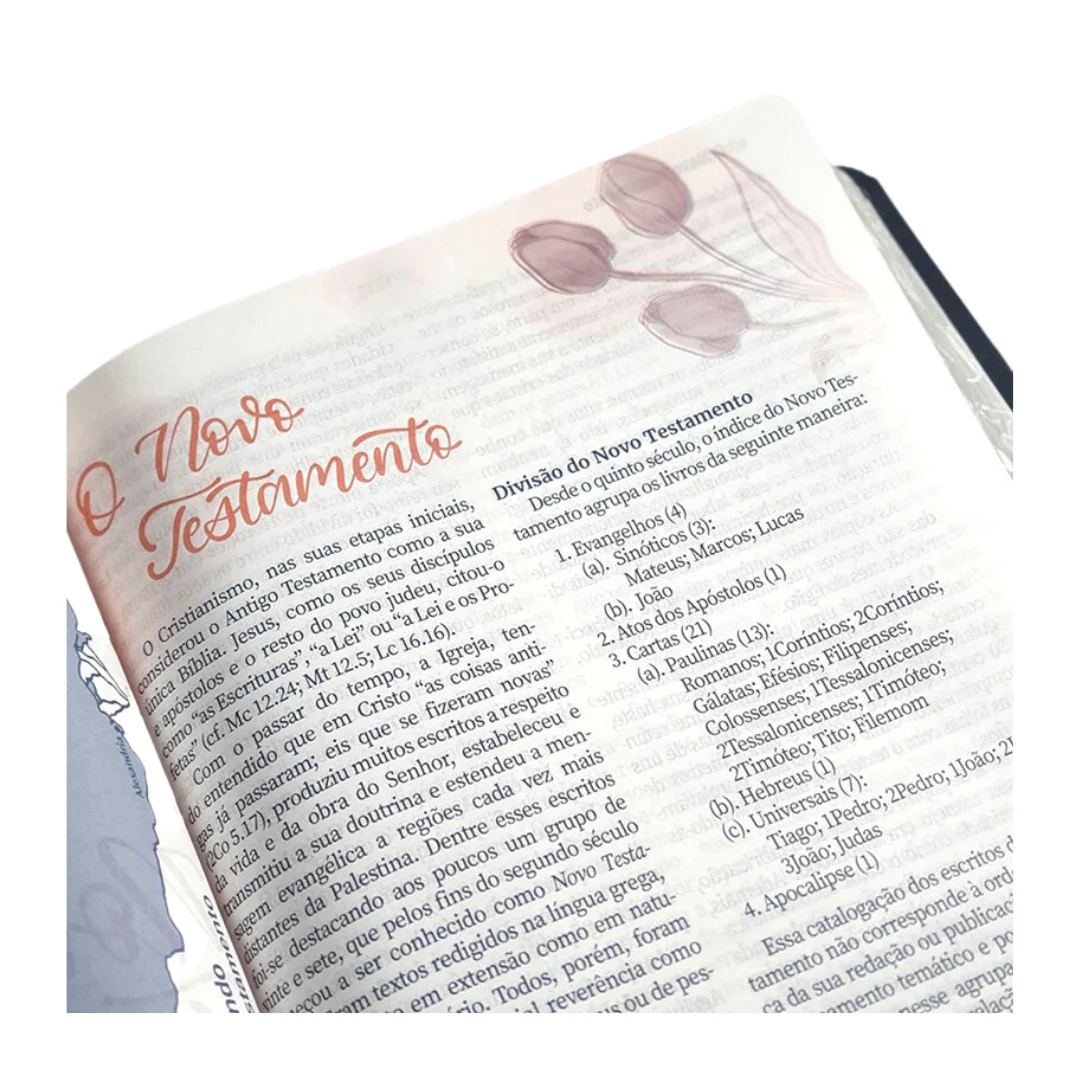 O Novo
Testamento
O Cristianismo, nas suas etapas iniciais,
considerou o Antigo Testamento como a sua
única Bíblia. Jesus, como os seus discípulos
e apóstolos e o resto do povo judeu, citou-o
como "as Escrituras", "a Lei" ou "a Lei e os Pro-
fetas" (cf. Mc 12.24; Mt 12.5; Lc 16.16).
Com o passar do tempo, a Igreja, ten-
do entendido que em Cristo "as coisas anti-
gas já passaram; eis que se fizeram novas"
(2Co 5.17), produziu muitos escritos a respeito
da vida e da obra do Senhor, estabeleceu e
transmitiu a sua doutrina e estendeu a men-
sagem evangélica a regiões cada vez mais
distantes da Palestina. Dentre esses escritos
foi-se destacando aos poucos um grupo de
vinte e sete, que pelos fins do segundo século
começou a ser conhecido como Novo Testa-
textos redigidos na língua grega,
em extensão como em natu-
Todos, porém, foram
reverência como
ou de pes-
Divisão do Novo Testamento
Desde o quinto século, o índice do Novo Tes-
tamento agrupa os livros da seguinte maneira:
1. Evangelhos (4)
(a). Sinóticos (3):
Mateus; Marcos; Lucas
(b). João
2. Atos dos Apóstolos (1)
3. Cartas (21)
(a). Paulinas (13):
Romanos; 1Coríntios; 2Coríntios;
Gálatas; Efésios; Filipenses;
Colossenses; 1Tessalonicenses;
2Tessalonicenses; 1Timóteo;
2Timóteo; Tito; Filemom
(b). Hebreus (1)
(c). Universais (7):
Tiago; 1Pedro; 2Pedro; 1João;
3João; Judas
4. Apocalipse (1)
Essa catalogação dos escritos
tamento não corresponde à
ca da sua redação ou
temático e
nesse
Alexandria